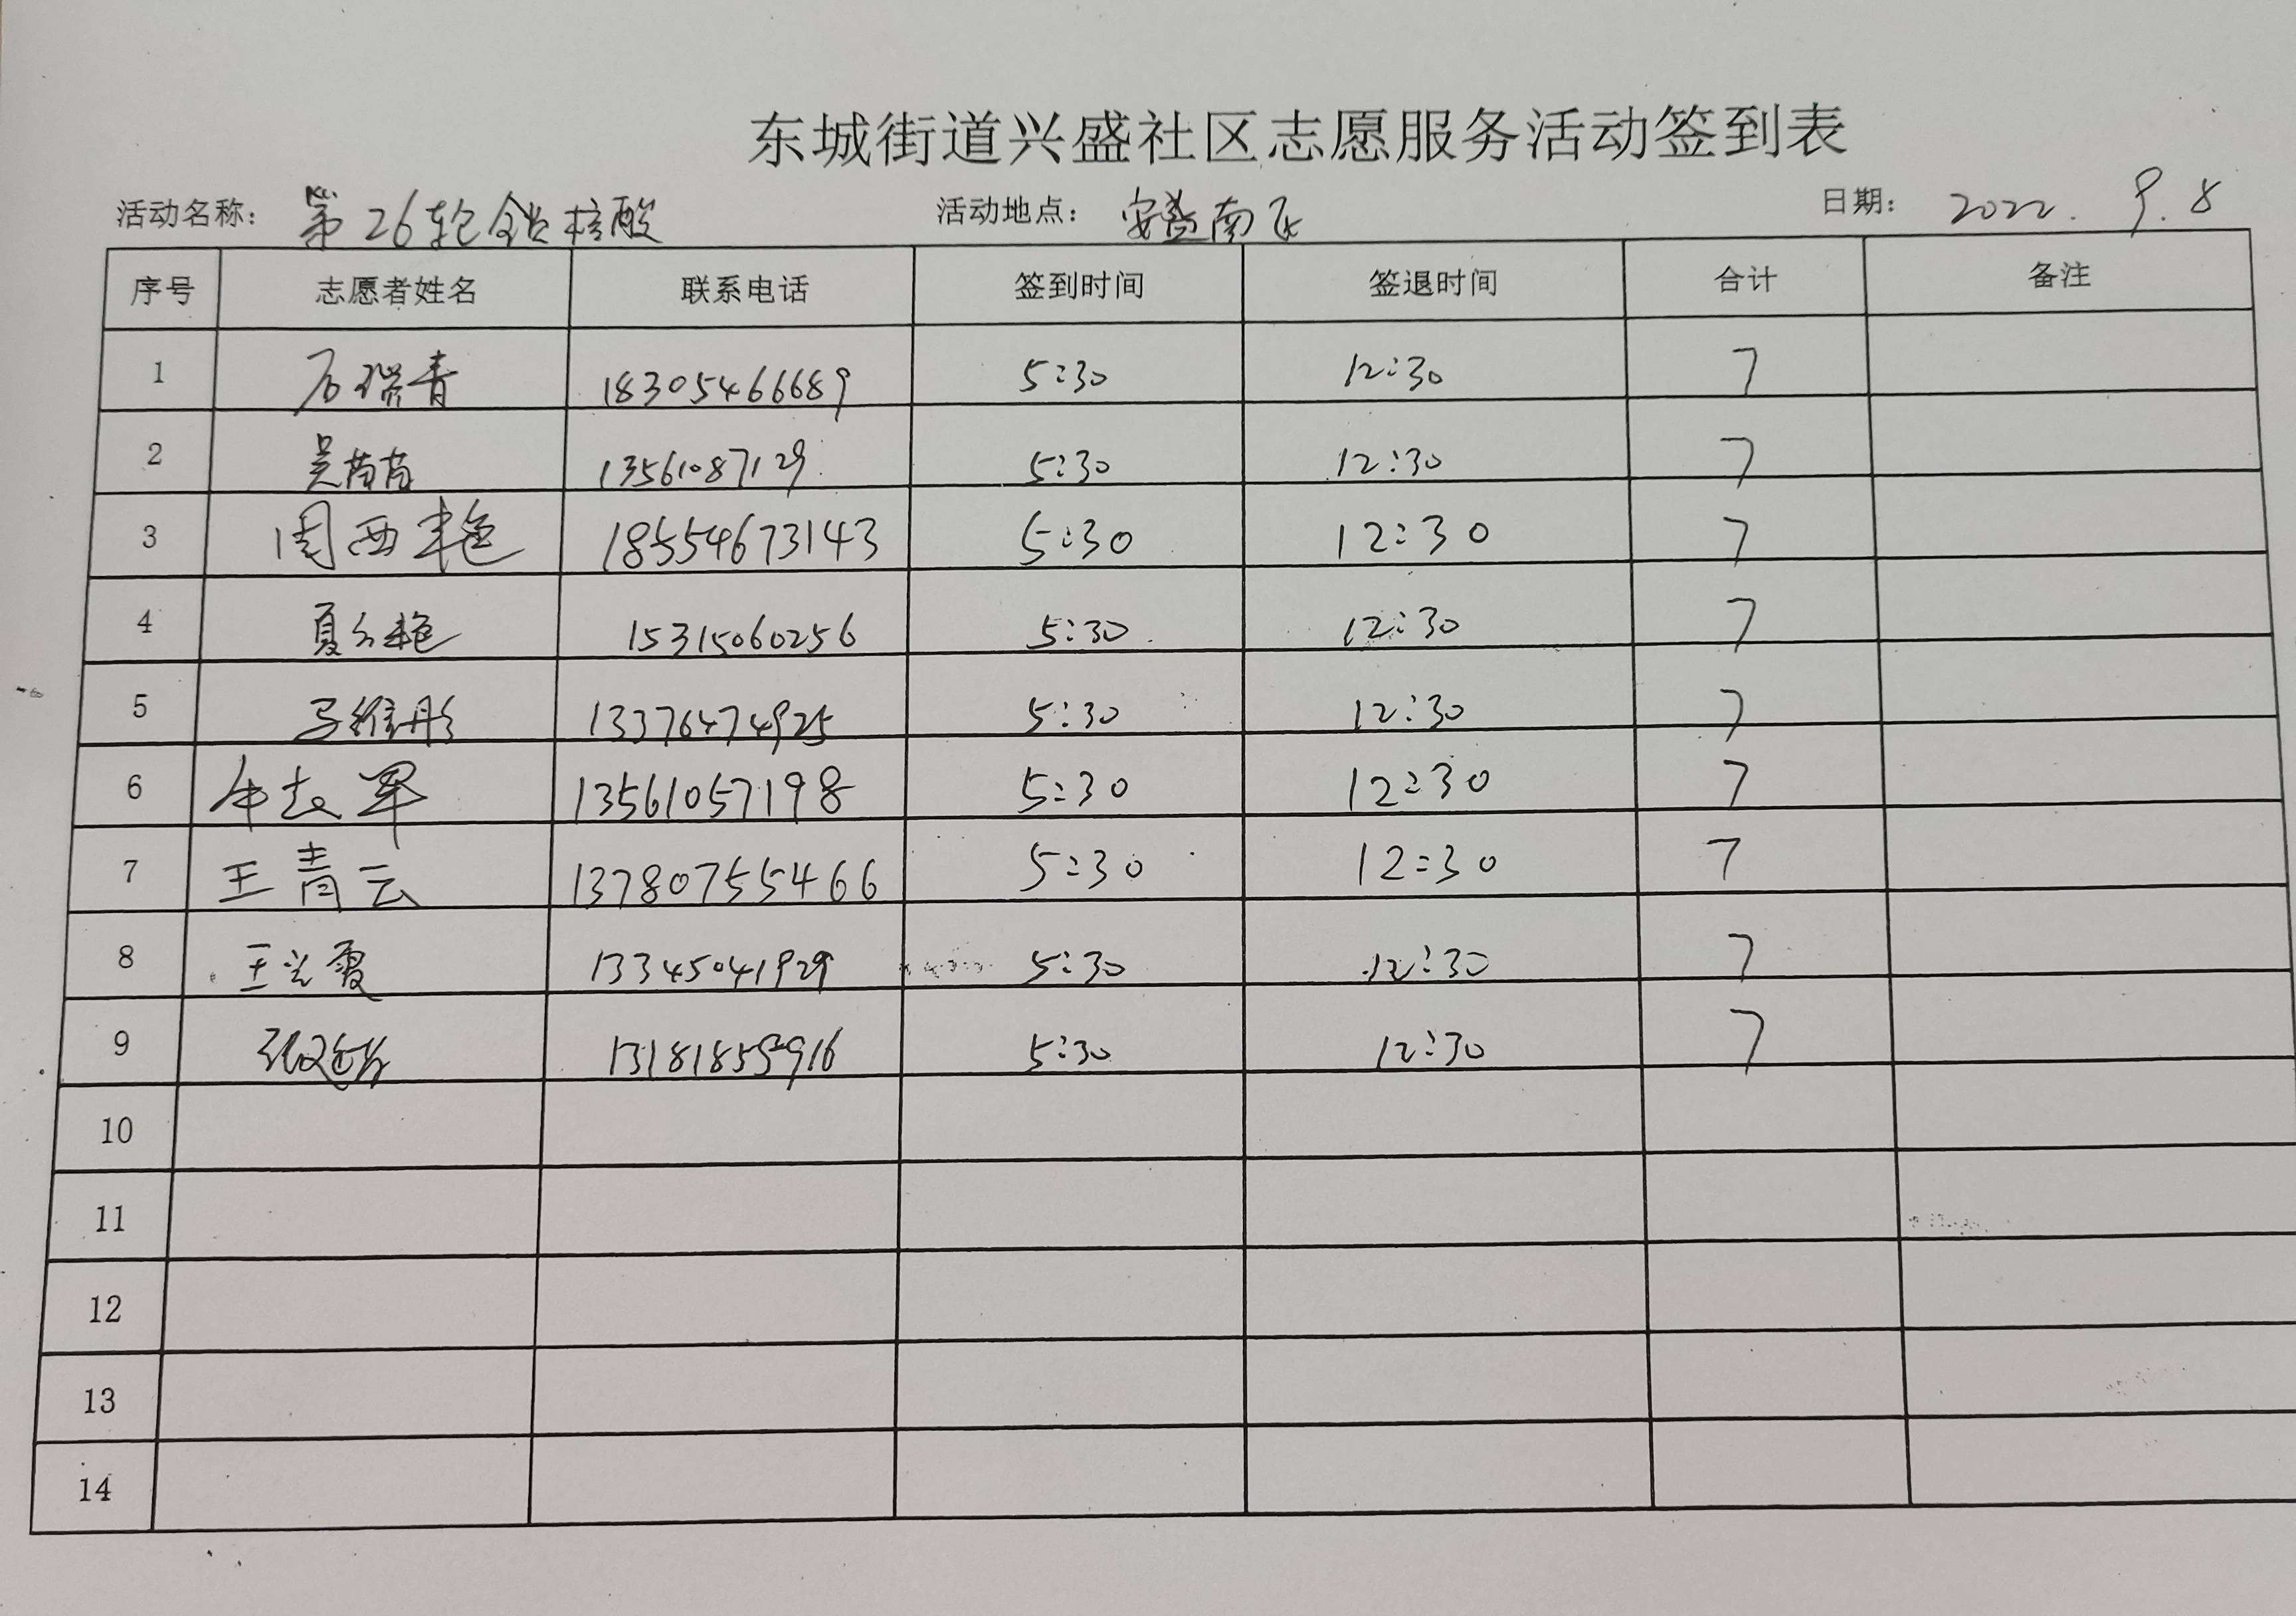 东城街道兴盛社区志愿服务活动签到表
活动名称： 第26轮全员核酸 活动地点： 安盛南区 日期： 2022. 9. 8
序号 志愿者姓名 联系电话 签到时间 签退时间 合计 备注
1 石瑞青 18305466689 5:30 12:30 7
2 吴苗苗 13561087129 5:30 12:30 7
3 周西艳 18554673143 5:30 12:30 7
4 15315060256 5:30 12:30 7
5 马维彤 13376474925 5:30 12:30 7
6 牛志军 13561057198 5:30 12:30 7
7 王青云 137807555466 5:30 12:30 7
8 王兰霞 13345041929 5:30 12:30 7
9 5:30 12:30 7
10
11
12
13
14